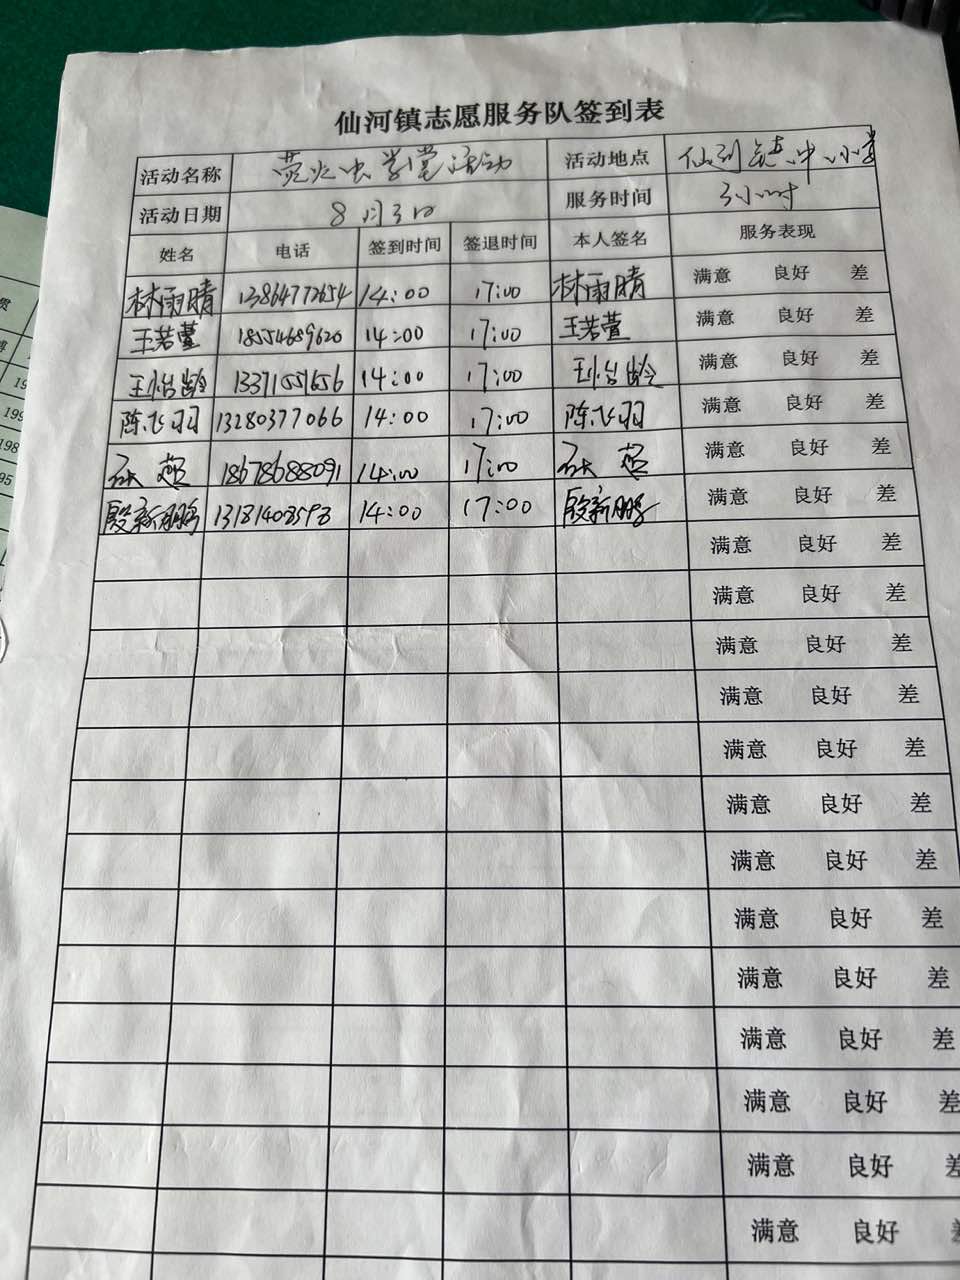 仙河镇志愿服务队签到表
活动名称 萤火虫学堂活动 活动地点 仙河镇中心小学
活动日期 8月3日 服务时间 3小时
姓名 电话 签到时间 签退时间 本人签名 服务表现
林雨晴 13864772654 14:00 17:00 林雨晴 满意 良好 差
王若萱 18554689620 14:00 17:00 王若萱 满意 良好 差
王怡龄 13371551656 14:00 17:00 王怡龄 满意 良好 差
陈飞羽 13280377066 14:00 17:00 陈飞羽 满意 良好 差
18678688091 14:00 17:00 满意 良好 差
殷新鹏 13181408593 14:00 17:00 殷新鹏 满意 良好 差
满意 良好 差
满意 良好 差
满意 良好 差
满意 良好 差
满意 良好 差
满意 良好 差
满意 良好 差
满意 良好 差
满意 良好 差
满意 良好 差
满意 良好 差
满意 良好
满意 良好